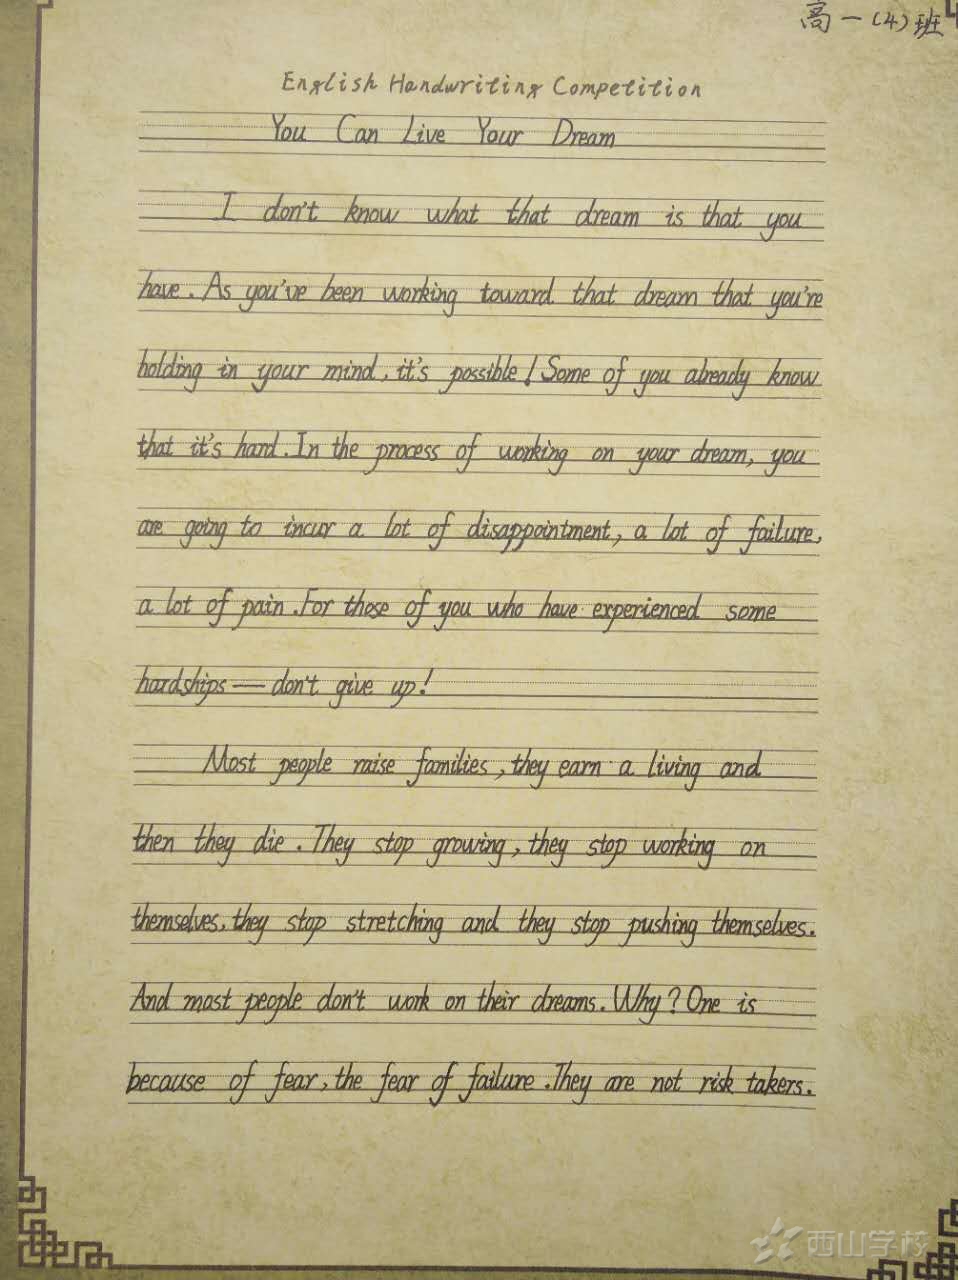 高一(4)班
English Handwriting Competition
You Can Live Your Dream
I don't know what that dream is that you
have. As you've been working toward that dream that you're
holding in your mind, it's possible! Some of you already know
that it's hard. In the process of working on your dream, you
are going to incur a lot of disappointment, a lot of failure,
a lot of pain. For those of you who have experienced some
hardships — don't give up!
Most people raise families, they earn a living and
then they die. They stop growing, they stop working on
themselves, they stop stretching and they stop pushing themselves.
And most people don't work on their dreams. Why? One is
because of fear, the fear of failure. They are not risk takers.
西山学校